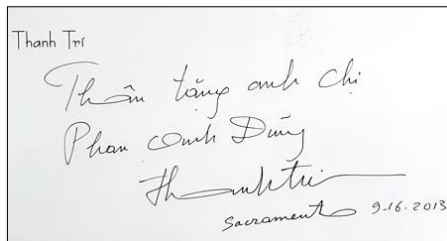 Thanh Trí
Thân tặng anh chị
Phan Anh Dũng
Thanh Trí
Sacramento 9.16.2013